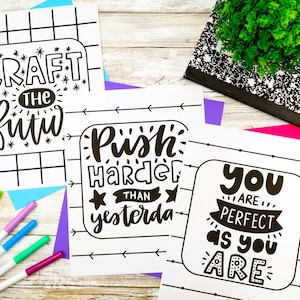 CRAFT
THE
Push
Harder
THAN
yesterda
you
ARE
PERFECT
as you
ARE